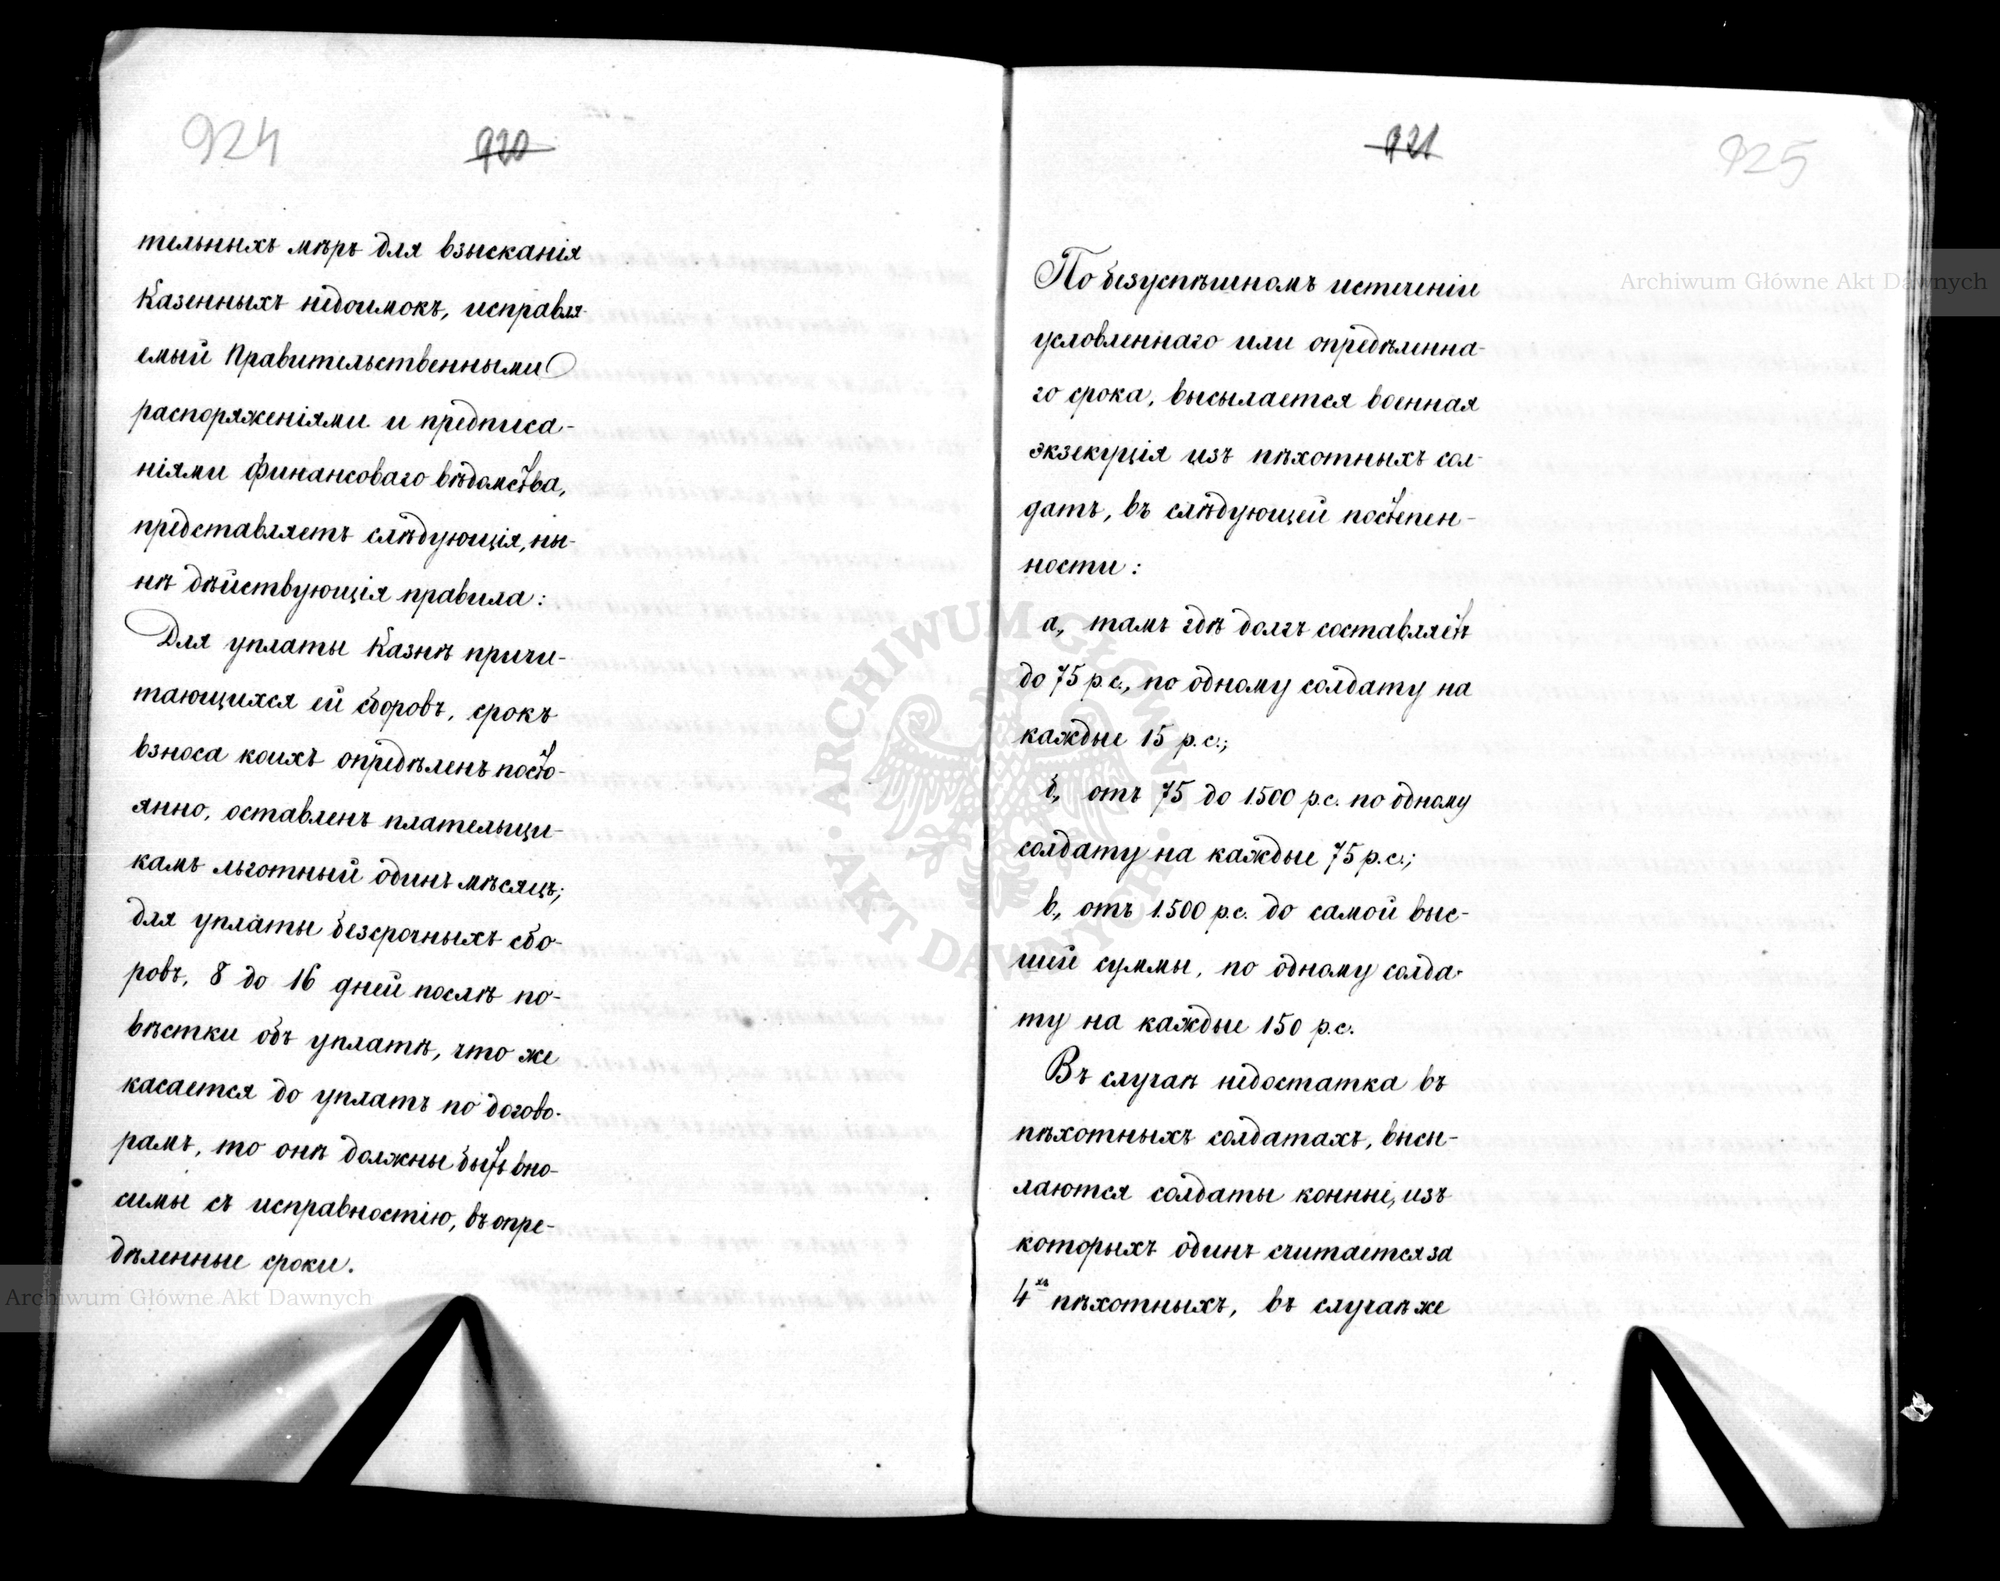 924
920
тельныхъ мѣръ для взысканія
Казенныхъ недоимокъ, исправля-
емый Правительственными
распоряженіями и предписа-
ніями финансоваго вѣдомства,
представляетъ слѣдующія, ны-
нѣ дѣйствующія правила:
Для уплаты Казнѣ причи-
тающихся ей сборовъ, срокъ
взноса коихъ опредѣленъ посто-
янно, оставленъ плательщи-
камъ льготный одинъ мѣсяцъ;
для уплаты безсрочныхъ сбо-
ровъ, 8 до 16 дней послѣ по-
вѣстки объ уплатѣ, что же
касается до уплатъ по догово-
рамъ, то онѣ должны быть вно-
симы съ исправностію, въ опре-
дѣленные сроки.
921
925
По безуспѣшномъ истеченіи
условленнаго или опредѣленна-
го срока, высылается военная
экзекуція изъ пѣхотныхъ сол-
датъ, въ слѣдующей постепен-
ности:
а., тамъ гдѣ долгъ составляетъ
до 75 р.с., по одному солдату на
каждые 15 р.с.;
б., отъ 75 до 1500 р.с. по одному
солдату на каждые 75 р.с.;
в., отъ 1500 р.с. до самой выс-
шей суммы, по одному солда-
ту на каждые 150 р.с.
Въ случаѣ недостатка въ
пѣхотныхъ солдатахъ, высы-
лаются солдаты конные, изъ
которыхъ одинъ считается за
4хъ пѣхотныхъ, въ случаѣ же
Archiwum Główne Akt Dawnych
Archiwum Główne Akt Dawnych
ARCHIWUM GŁÓWNE
AKT DAWNYCH